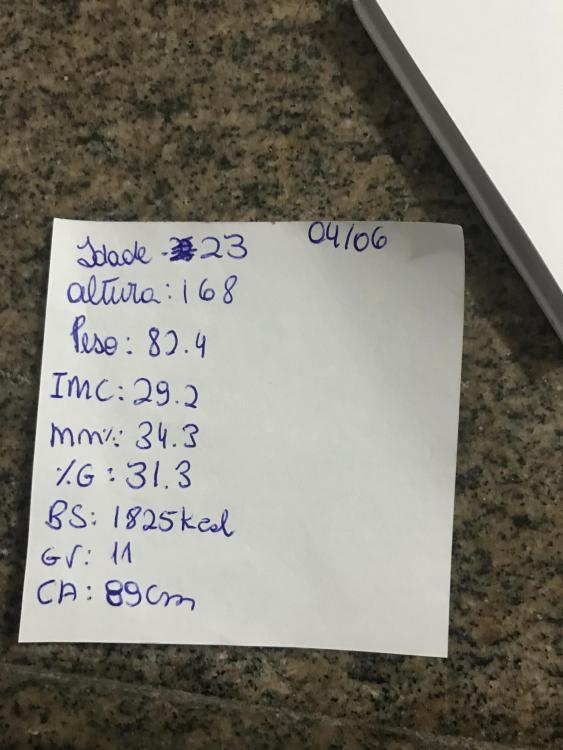 04/06
Idade - 23
altura: 168
Peso: 82.4
IMC: 29.2
mm%: 34.3
%G: 31.3
BS: 1825kcal
GV: 11
CA: 89cm